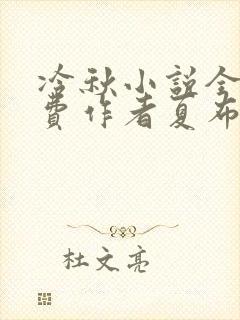 冷秋小说全
费作者夏布
杜文亮